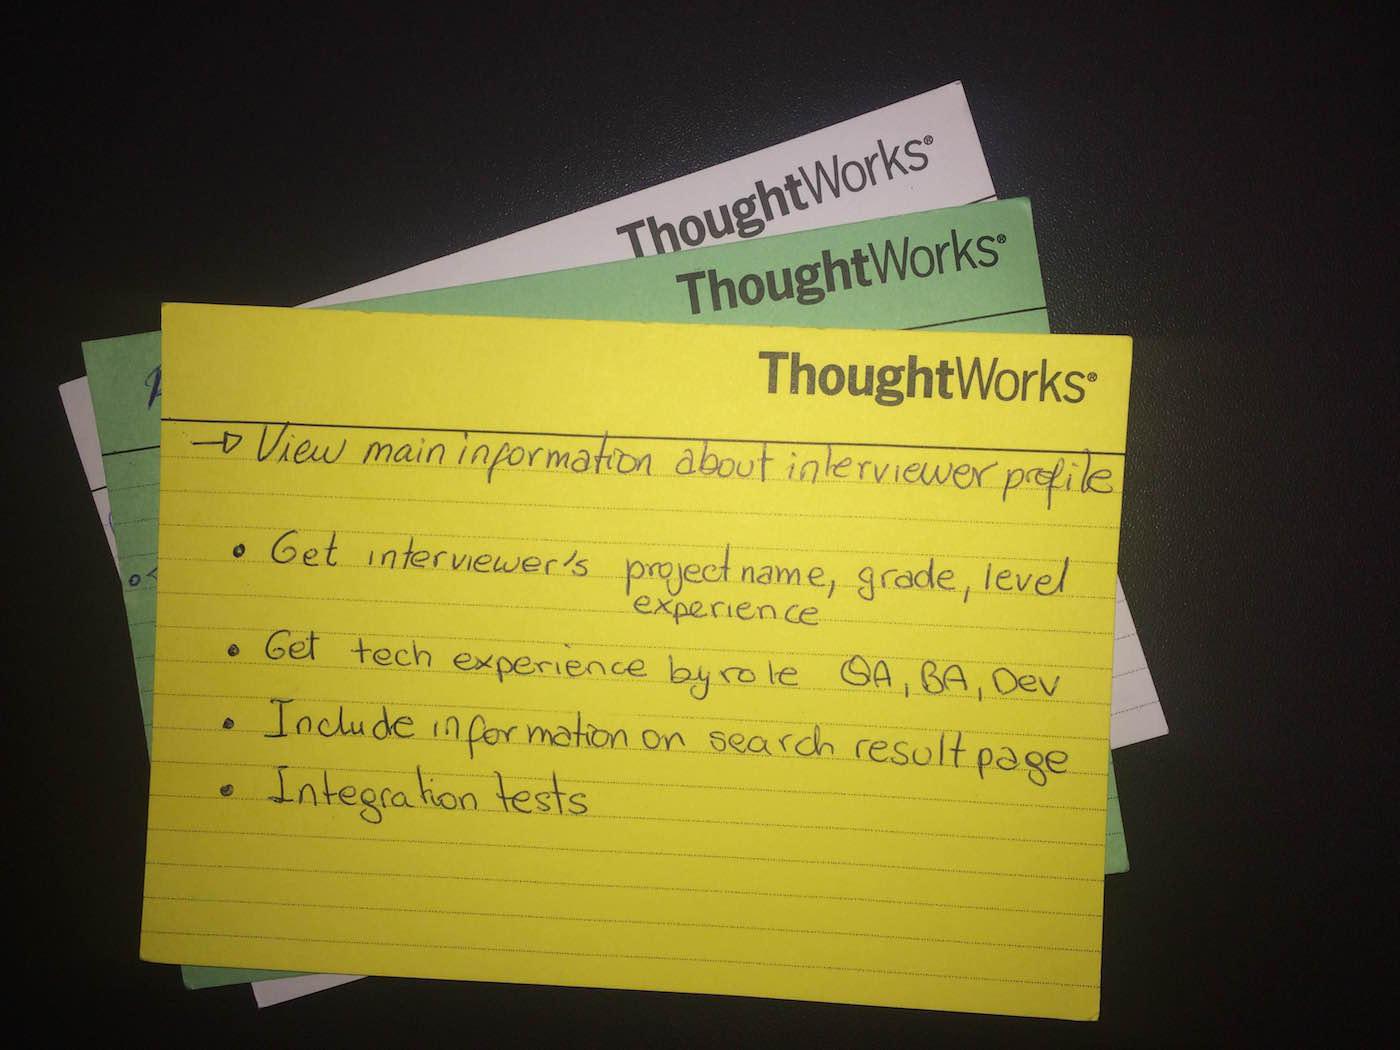 ThoughtWorks®
ThoughtWorks®
ThoughtWorks®
→ View main information about interviewer profile
• Get interviewer's project name, grade, level
experience
• Get tech experience by role QA, BA, Dev
• Include information on search result page
• Integration tests